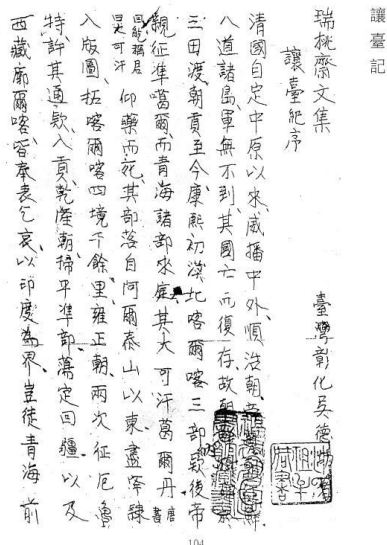 讓臺記
瑞桃齋文集
讓臺紀序
臺灣彰化吳德功
清國自定中原以來、威播中外、順治朝
八道諸島軍無不到、其國亡而復存、故朝
三田渡朝貢至今、康熙初漠北喀爾喀三部欵後帝
親征準噶爾、而青海諸部來庭、其大可汗葛爾丹
唐書
回紇稱君曰大可汗
仰藥而死、其部落自阿爾泰山以東盡淬隸
入版圖、拓喀爾喀四境千餘里、雍正朝兩次征厄魯
特、許其通欵入貢、乾隆朝掃平準部、蕩定回疆、以及
西藏廓爾喀、皆奉表乞哀、以印度為界、豈徒青海前
104